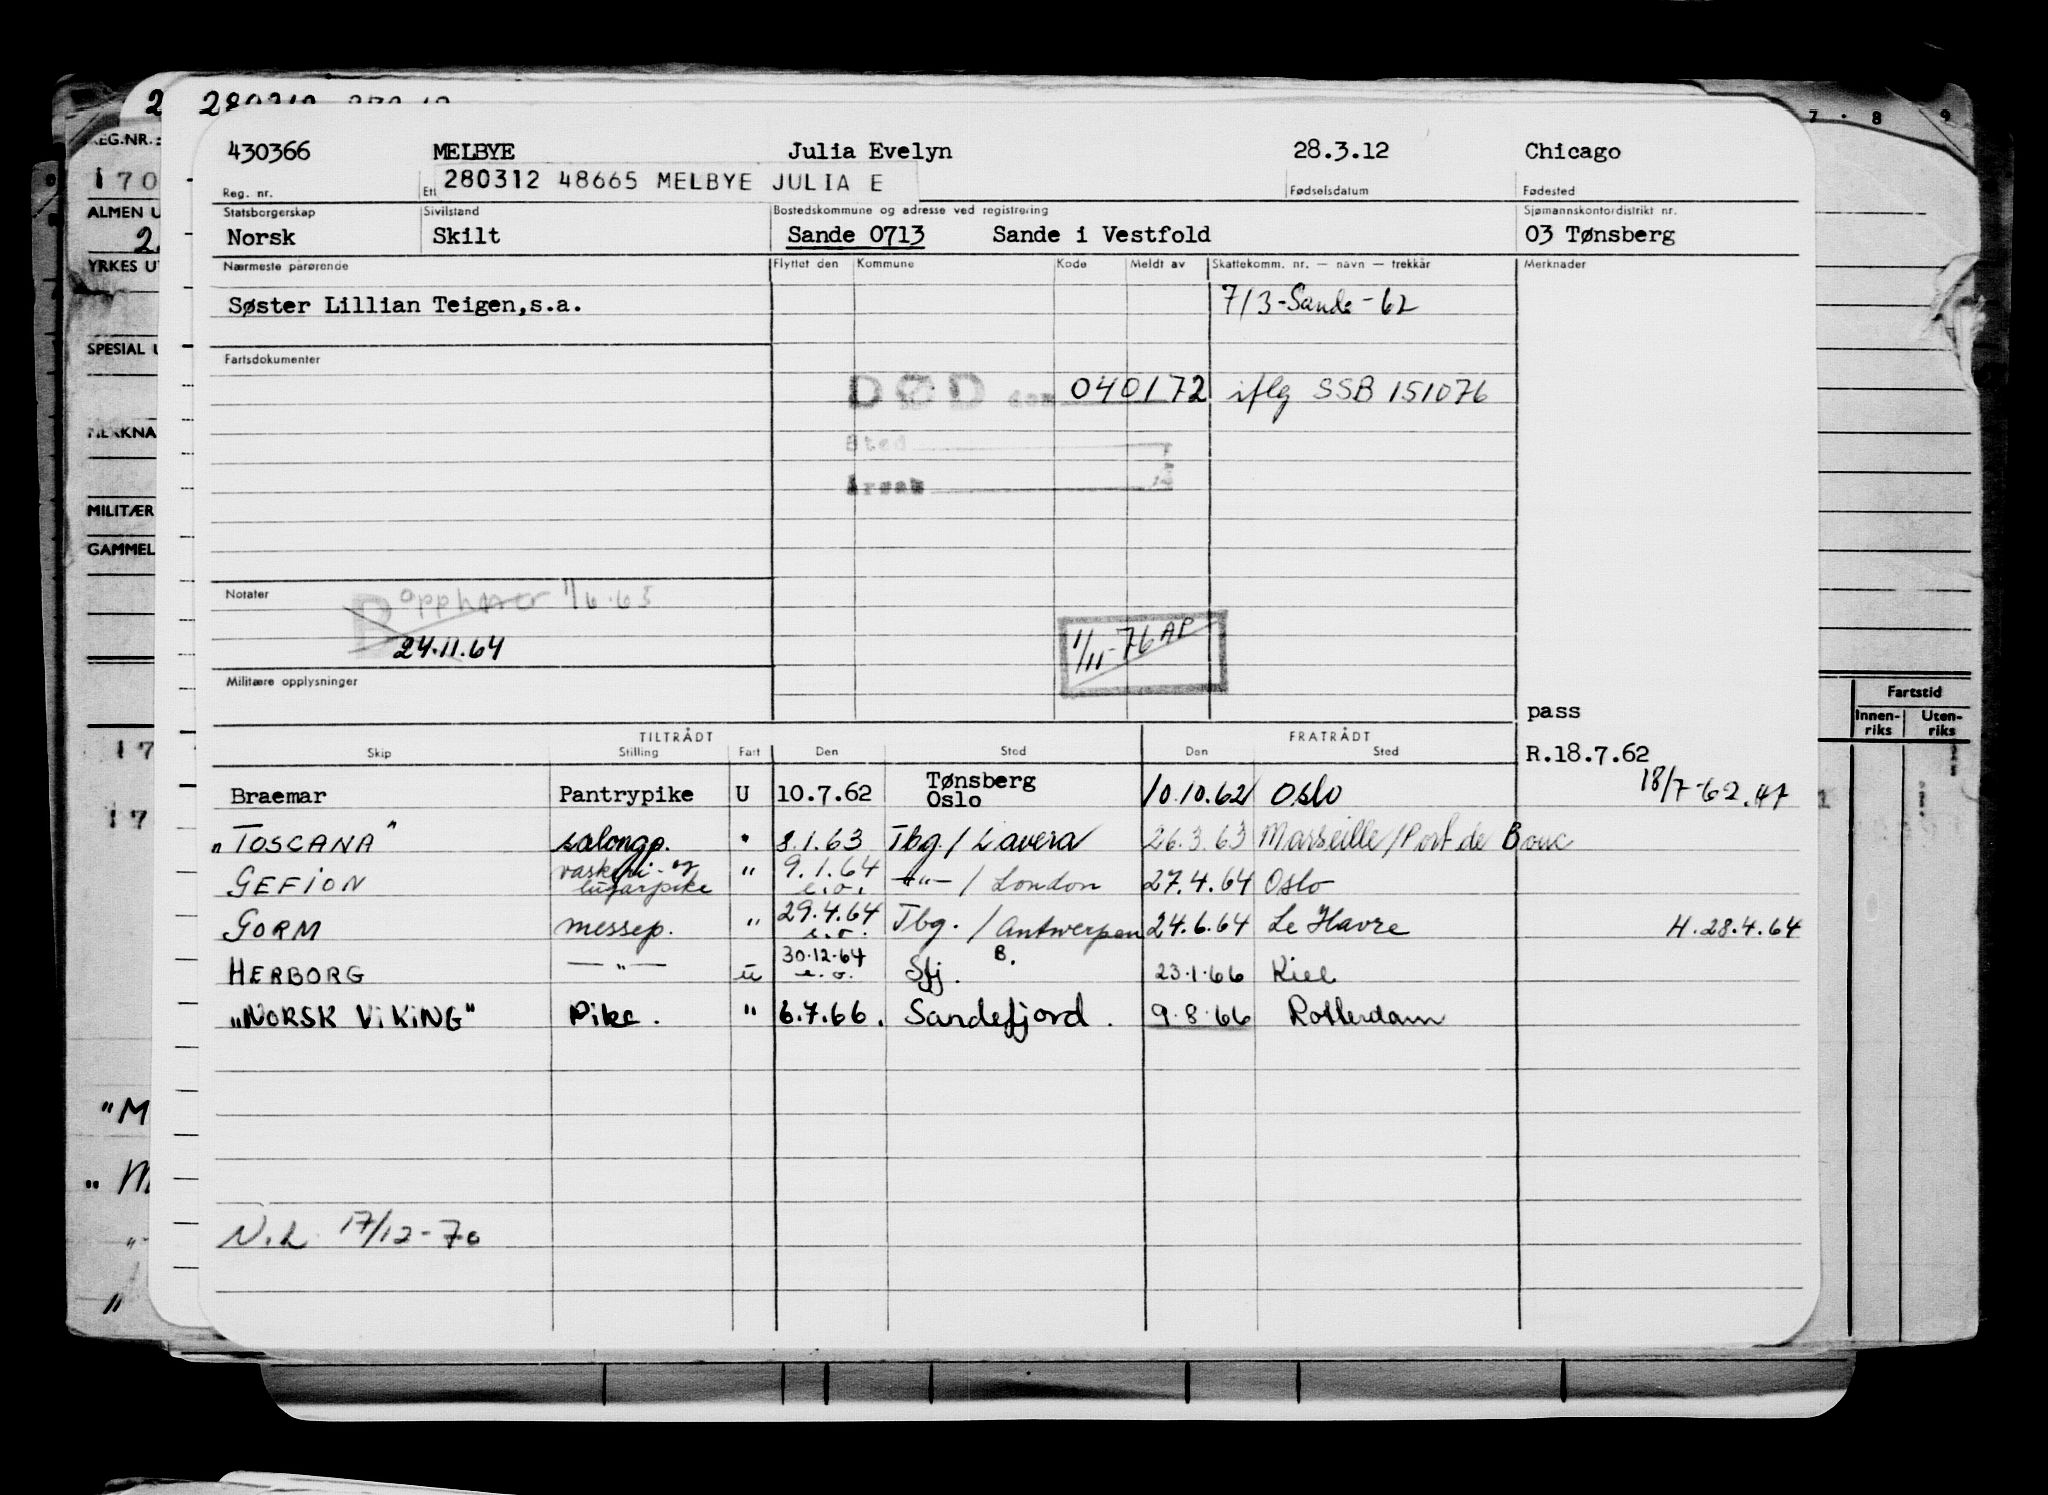 280312
430366 MELBYE Julia Evelyn 28.3.12 Chicago
280312 48665 MELBYE JULIA E
Reg. nr. Fødselsdatum Fødested
Statsborgerskap Sivilstand Bostedskommune og adresse ved registrering Sjømannskontordistrikt nr.
Norsk Skilt Sande 0713 Sande i Vestfold 03 Tønsberg
Nærmeste pårørende Flyttet den Kommune Kode Meldt av Skattekomm. nr. — navn — trekkår Merknader
Søster Lillian Teigen,s.a. 713-Sande-62
Fartsdokumenter
DØD den 040172 iflg SSB 151076
Sted
Årsak
Notater opphører 1/6.63
24.11.64
1/11-76 AP
Militære opplysninger
pass
TILTRÅDT FRATRÅDT
Skip Stilling Fart Den Sted Den Sted
R.18.7.62
18/7-62.
Braemar Pantrypike U 10.7.62 Tønsberg Oslo 10.10.62 Oslo
"TOSCANA" salongp. " 8.1.63 Tbg./Lavera 26.3.63 Marseille/Port de Bouc
GEFION vaskeri- og lugarpike " 9.1.64 e.o. —"—/London 27.4.64 Oslo
GORM messep. " 29.4.64 e.o. Tbg./Antwerpen 24.6.64 Le Havre H.28.4.64
HERBORG —"— u 30.12.64 e.o. Sfj. B. 23.1.66 Kiel
"NORSK VIKING" Pike. " 6.7.66. Sandefjord. 9.8.66 Rotterdam
N.L. 17/12-70
REG.NR.:
170
ALMEN U
YRKES U
SPESIAL U
MERKNA
MILITÆR
GAMMEL
17
17
"M
7 8 9
Fartstid
Innen-riks Uten-riks